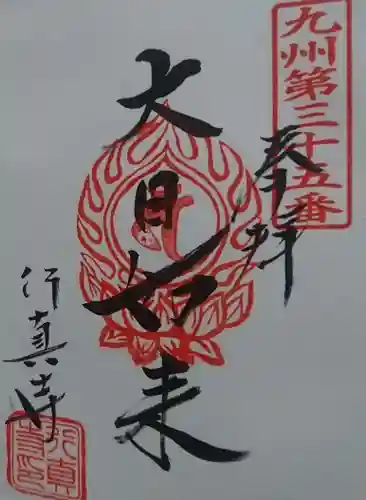 九州第三十五番
奉拝
大日如来
行真寺